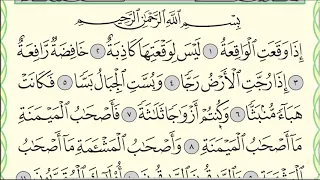 بِسْمِ ٱللَّهِ ٱلرَّحْمَٰنِ ٱلرَّحِيمِ
إِذَا وَقَعَتِ ٱلْوَاقِعَةُ ١ لَيْسَ لِوَقْعَتِهَا كَاذِبَةٌ ٢ خَافِضَةٌ رَّافِعَةٌ
٣ إِذَا رُجَّتِ ٱلْأَرْضُ رَجًّا ٤ وَبُسَّتِ ٱلْجِبَالُ بَسًّا ٥ فَكَانَتْ
هَبَآءً مُّنۢبَثًّا ٦ وَكُنتُمْ أَزْوَٰجًا ثَلَٰثَةً ٧ فَأَصْحَٰبُ ٱلْمَيْمَنَةِ
مَآ أَصْحَٰبُ ٱلْمَيْمَنَةِ ٨ وَأَصْحَٰبُ ٱلْمَشْـَٔمَةِ مَآ أَصْحَٰبُ